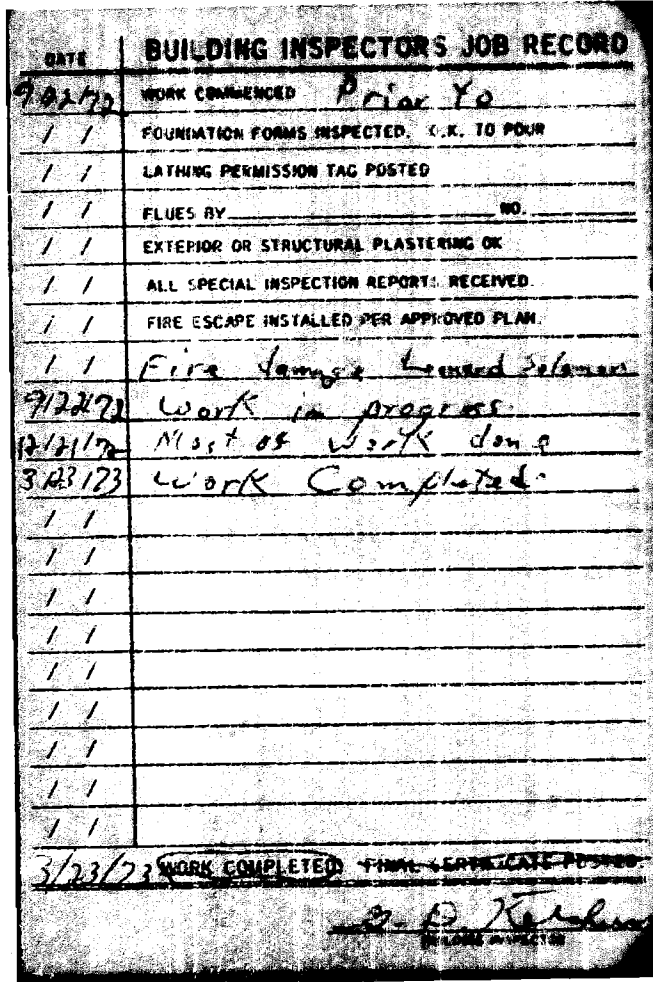 DATE BUILDING INSPECTORS JOB RECORD
WORK COMMENCED Prior To
/ / FOUNDATION FORMS INSPECTED, O.K. TO POUR
/ / LATHING PERMISSION TAG POSTED
/ / FLUES BY NO.
/ / EXTERIOR OR STRUCTURAL PLASTERING OK
/ / ALL SPECIAL INSPECTION REPORTS RECEIVED.
/ / FIRE ESCAPE INSTALLED PER APPROVED PLAN.
/ / Fire damage Leonard
9/22/72 Work in progress.
12/21/72 Most of work done
3/23/73 Work Completed.
/ /
/ /
/ /
/ /
/ /
/ /
/ /
/ /
/ /
3/23/73 WORK COMPLETED FINAL CERTIFICATE POSTED
BUILDING INSPECTOR